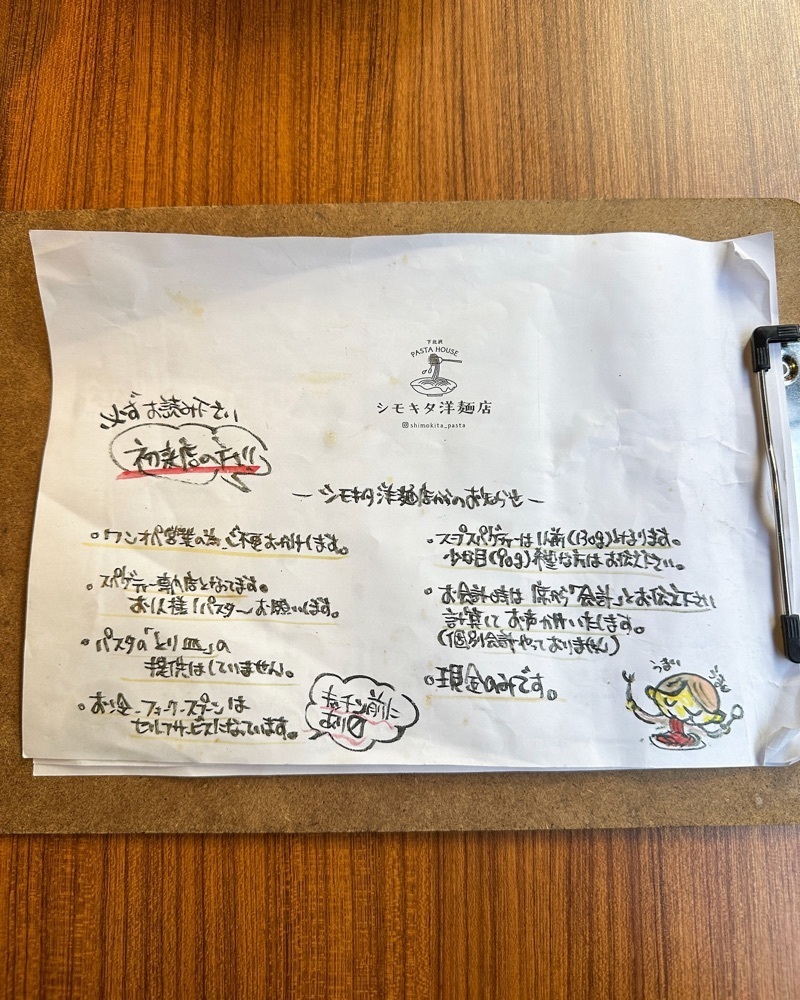 下北沢
PASTA HOUSE
シモキタ洋麺店
shimokita_pasta
必ずお読み下さい
初来店の方が
ーシモキタ洋麺店からのお知らせー
・ワンオペ営業の為、ご不便おかけします。
・スパゲティー専門店となってます。
お1人様1パスタ〜お願いします。
・パスタの「とり皿」の
提供はしていません。
・お冷、フォーク・スプーンは
セルフサービスになっています。
キッチン前に
あり〼
・スープスパゲティーは1人前(130g)となります。
少な目(90g)希望な方はお伝え下さい。
・お会計の時は 席から「会計」とお伝え下さい
計算して お声がけいたします。
(個別会計やっておりません)
・現金のみです。
うまい
うまい